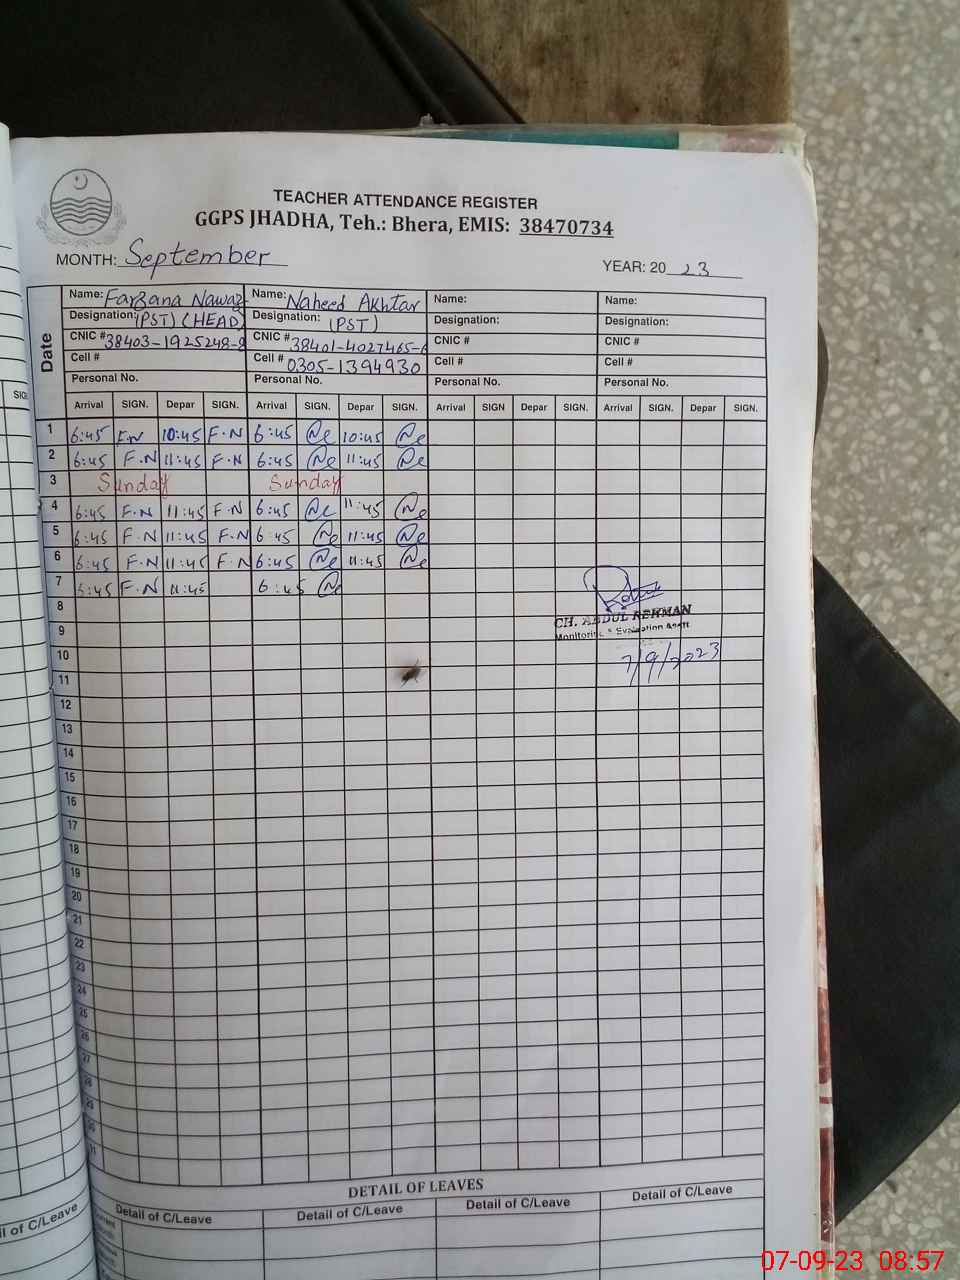 TEACHER ATTENDANCE REGISTER
GGPS JHADHA, Teh.: Bhera, EMIS: 38470734
MONTH: September YEAR: 2023
Date
Name: Farzana Nawaz Name: Naheed Akhtar Name: Name:
Designation: (PST) (HEAD) Designation: (PST) Designation: Designation:
CNIC # 38403-1925248-8 CNIC # 38401-4027465-6 CNIC # CNIC #
Cell # Cell # 0305-1394930 Cell # Cell #
Personal No. Personal No. Personal No. Personal No.
Arrival SIGN. Depar SIGN. Arrival SIGN. Depar SIGN. Arrival SIGN Depar SIGN. Arrival SIGN. Depar SIGN.
1 6:45 F.N 10:45 F.N 6:45 10:45
2 6:45 F.N 11:45 F.N 6:45 11:45
3 Sunday Sunday
4 6:45 F.N 11:45 F.N 6:45 11:45
5 6:45 F.N 11:45 F.N 6:45 11:45
6 6:45 F.N 11:45 F.N 6:45 11:45
7 6:45 F.N 11:45 6:45
8
CH. ABDUL REHMAN
9
Monitoring & Evaluation
10
7/9/2023
11
12
13
14
15
16
17
18
19
20
21
22
23
24
25
26
27
28
29
30
DETAIL OF LEAVES
Detail of C/Leave Detail of C/Leave Detail of C/Leave Detail of C/Leave
of C/Leave
07-09-23 08:57